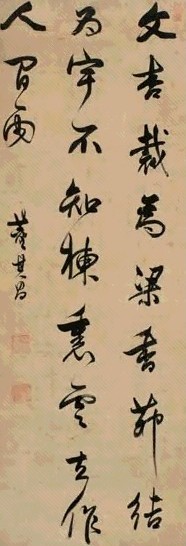 文杏裁為梁香茅結
為宇不知棟裏雲去作
人間雨
董其昌